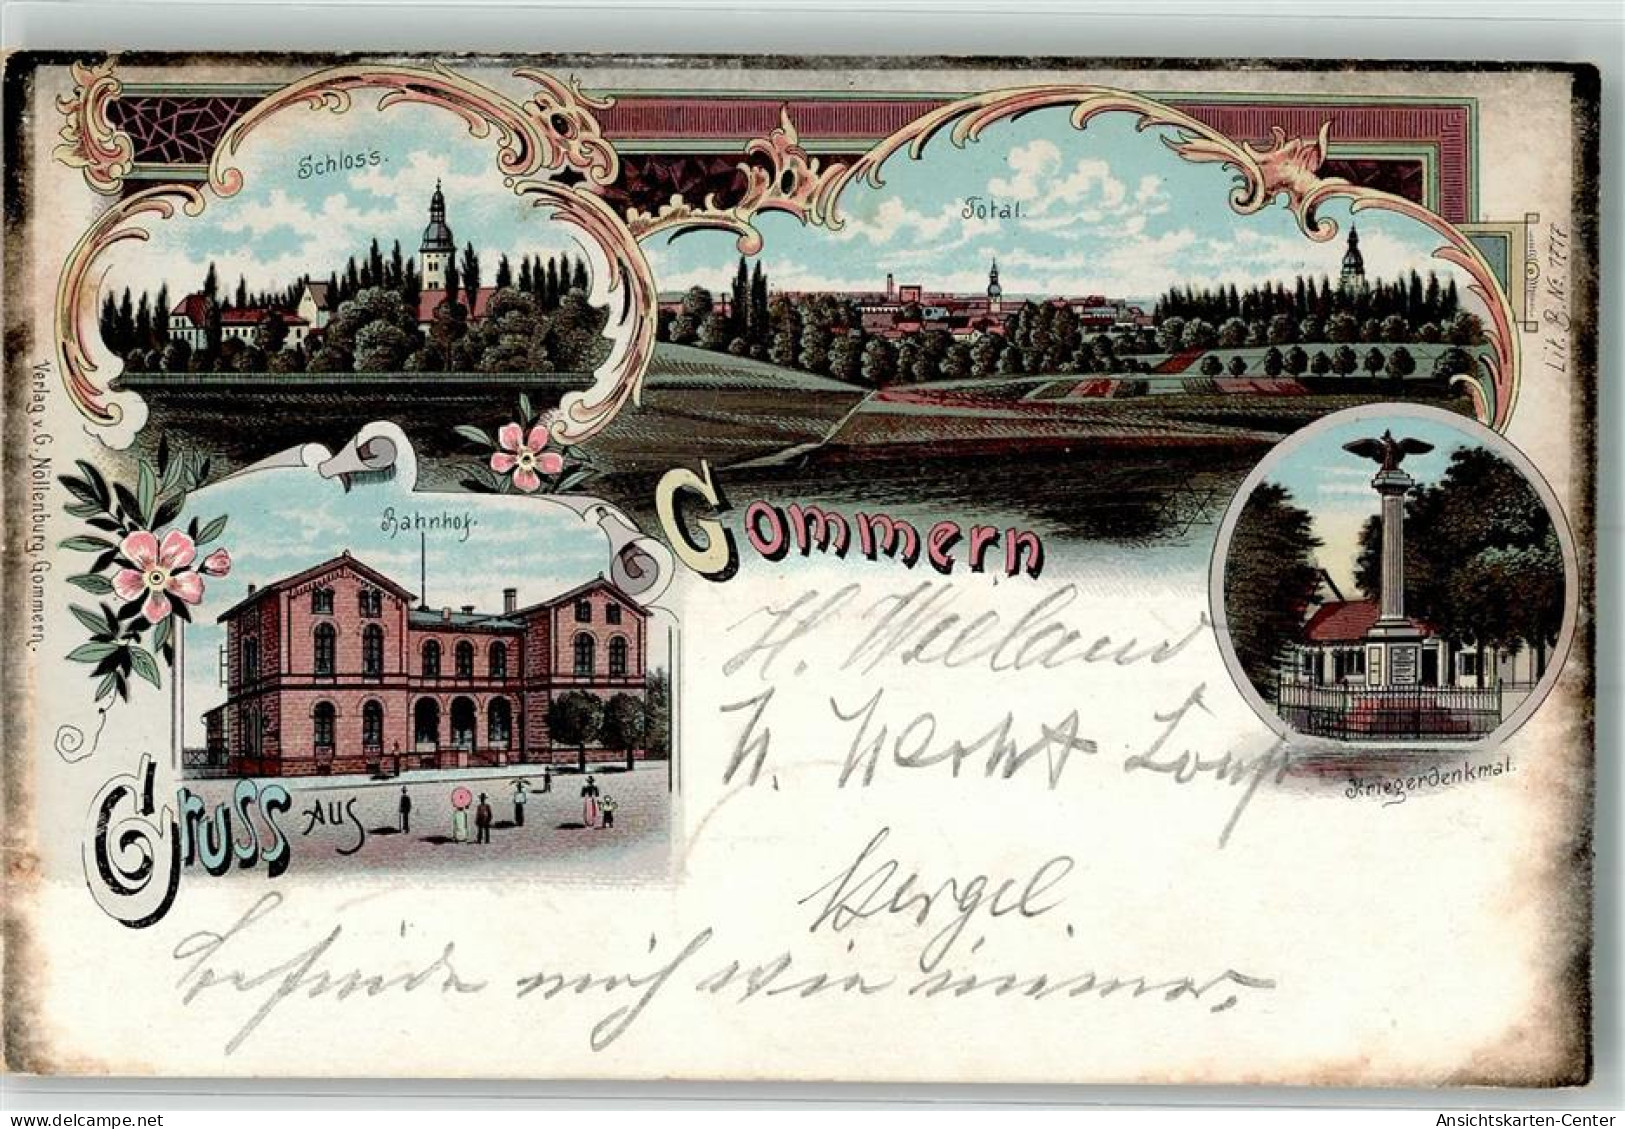 Schloss.
Total.
Lit. B. No. 7777
Verlag v. G. Nollenburg, Gommern.
Bahnhof.
Gommern
Gruss aus
Kriegerdenkmal.
H.
H.
befinde mich wie immer.
Ansichtskarten-Center